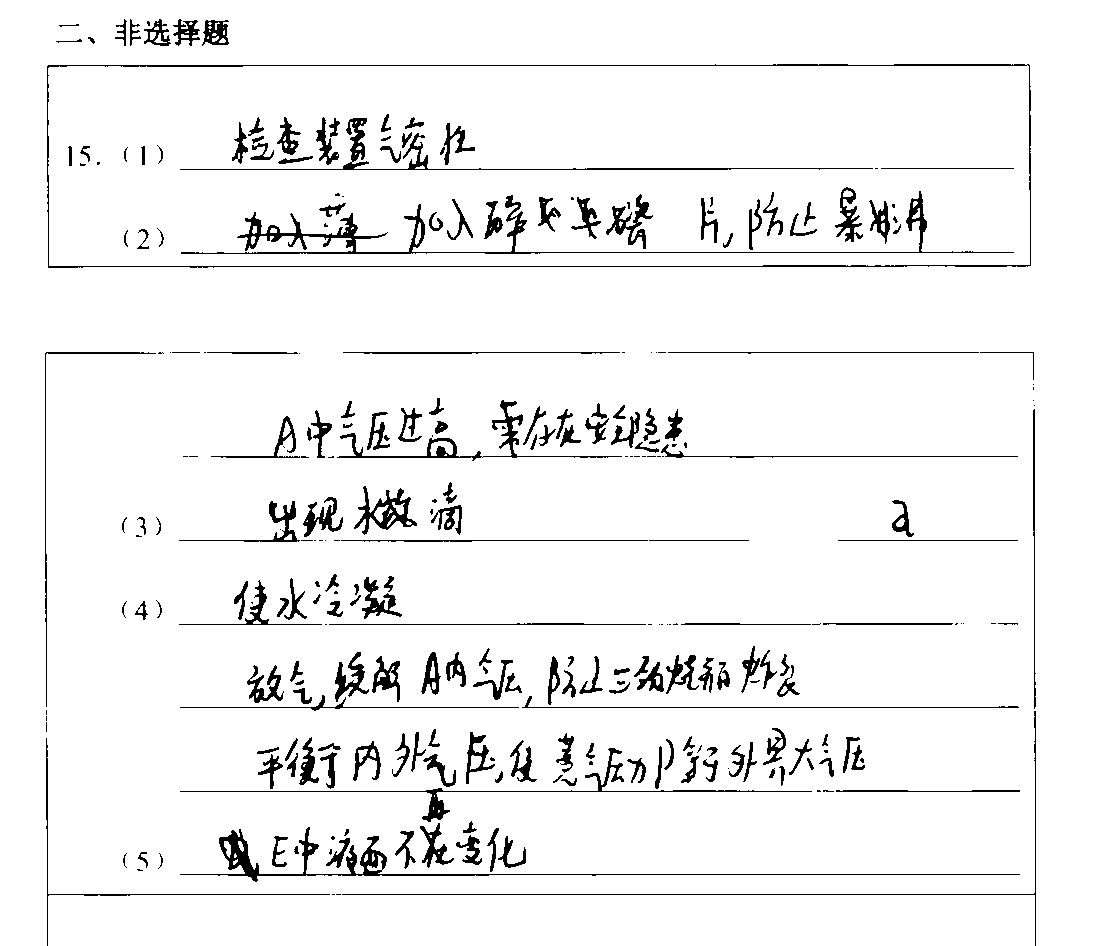 二、非选择题
15.(1) 检查装置气密性
(2) 加入 加入碎 瓷片,防止暴沸
A中气压过高,存在安全隐患
(3) 出现水滴 a
(4) 使水冷凝
放气,缓解A内气压,防止三颈烧瓶炸裂
平衡 内外气压,使蒸气压力P等于外界大气压
(5) E中液面不再变化